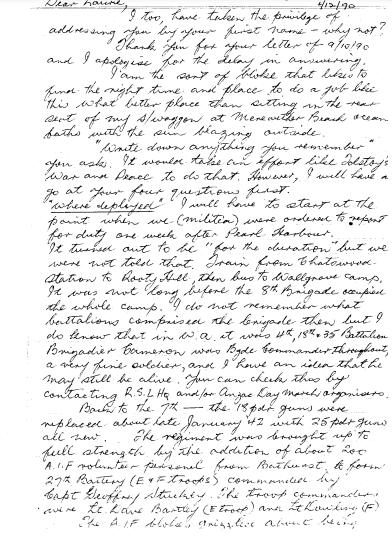 Dear Laurie, 4/12/90
I too, have taken the privilege of
addressing you by your first name - why not?
Thank you for your letter of 9/10/90
and I apologise for the delay in answering.
I am the sort of bloke that likes to
find the right time and place to do a job like
this what better place than sitting in the rear
seat of my S/waggon at Merewether Beach ocean
baths with the sun blazing outside.
"Write down anything you remember"
you ask. It would take an effort like Tolstoy's
War and Peace to do that. However, I will have a
go at your four questions first.
"where deployed" I will have to start at the
point when we (militia) were ordered to report
for duty one week after Pearl Harbour.
It turned out to be "for the duration" but we
were not told that. Train from Chatswood
station to Rooty Hill, then bus to Wallgrove camp.
It was not long before the 8th Brigade occupied
the whole camp. I do not remember what
battalions comprised the brigade then but I
do know that in W.A. it was 4th, 18th & 35 Battalion
Brigadier Cameron was Bgde Commander throughout,
a very fine soldier, and I have an idea that he
may still be alive. You can check this by
contacting R.S.L HQ and/or Anzac Day march organisers.
Back to the 7th — the 18 pdr guns were
replaced about late January 42 with 25 pdr guns
all new. The regiment was brought up to
full strength by the addition of about 200
A.I.F volunteer personel from Bathurst, to form
27th Battery (E & F troops) commanded by
Capt Geoffrey. The troop commanders
were Lt. Dave Bartley (E troop) and Lt (F)
The A.I.F blokes about being